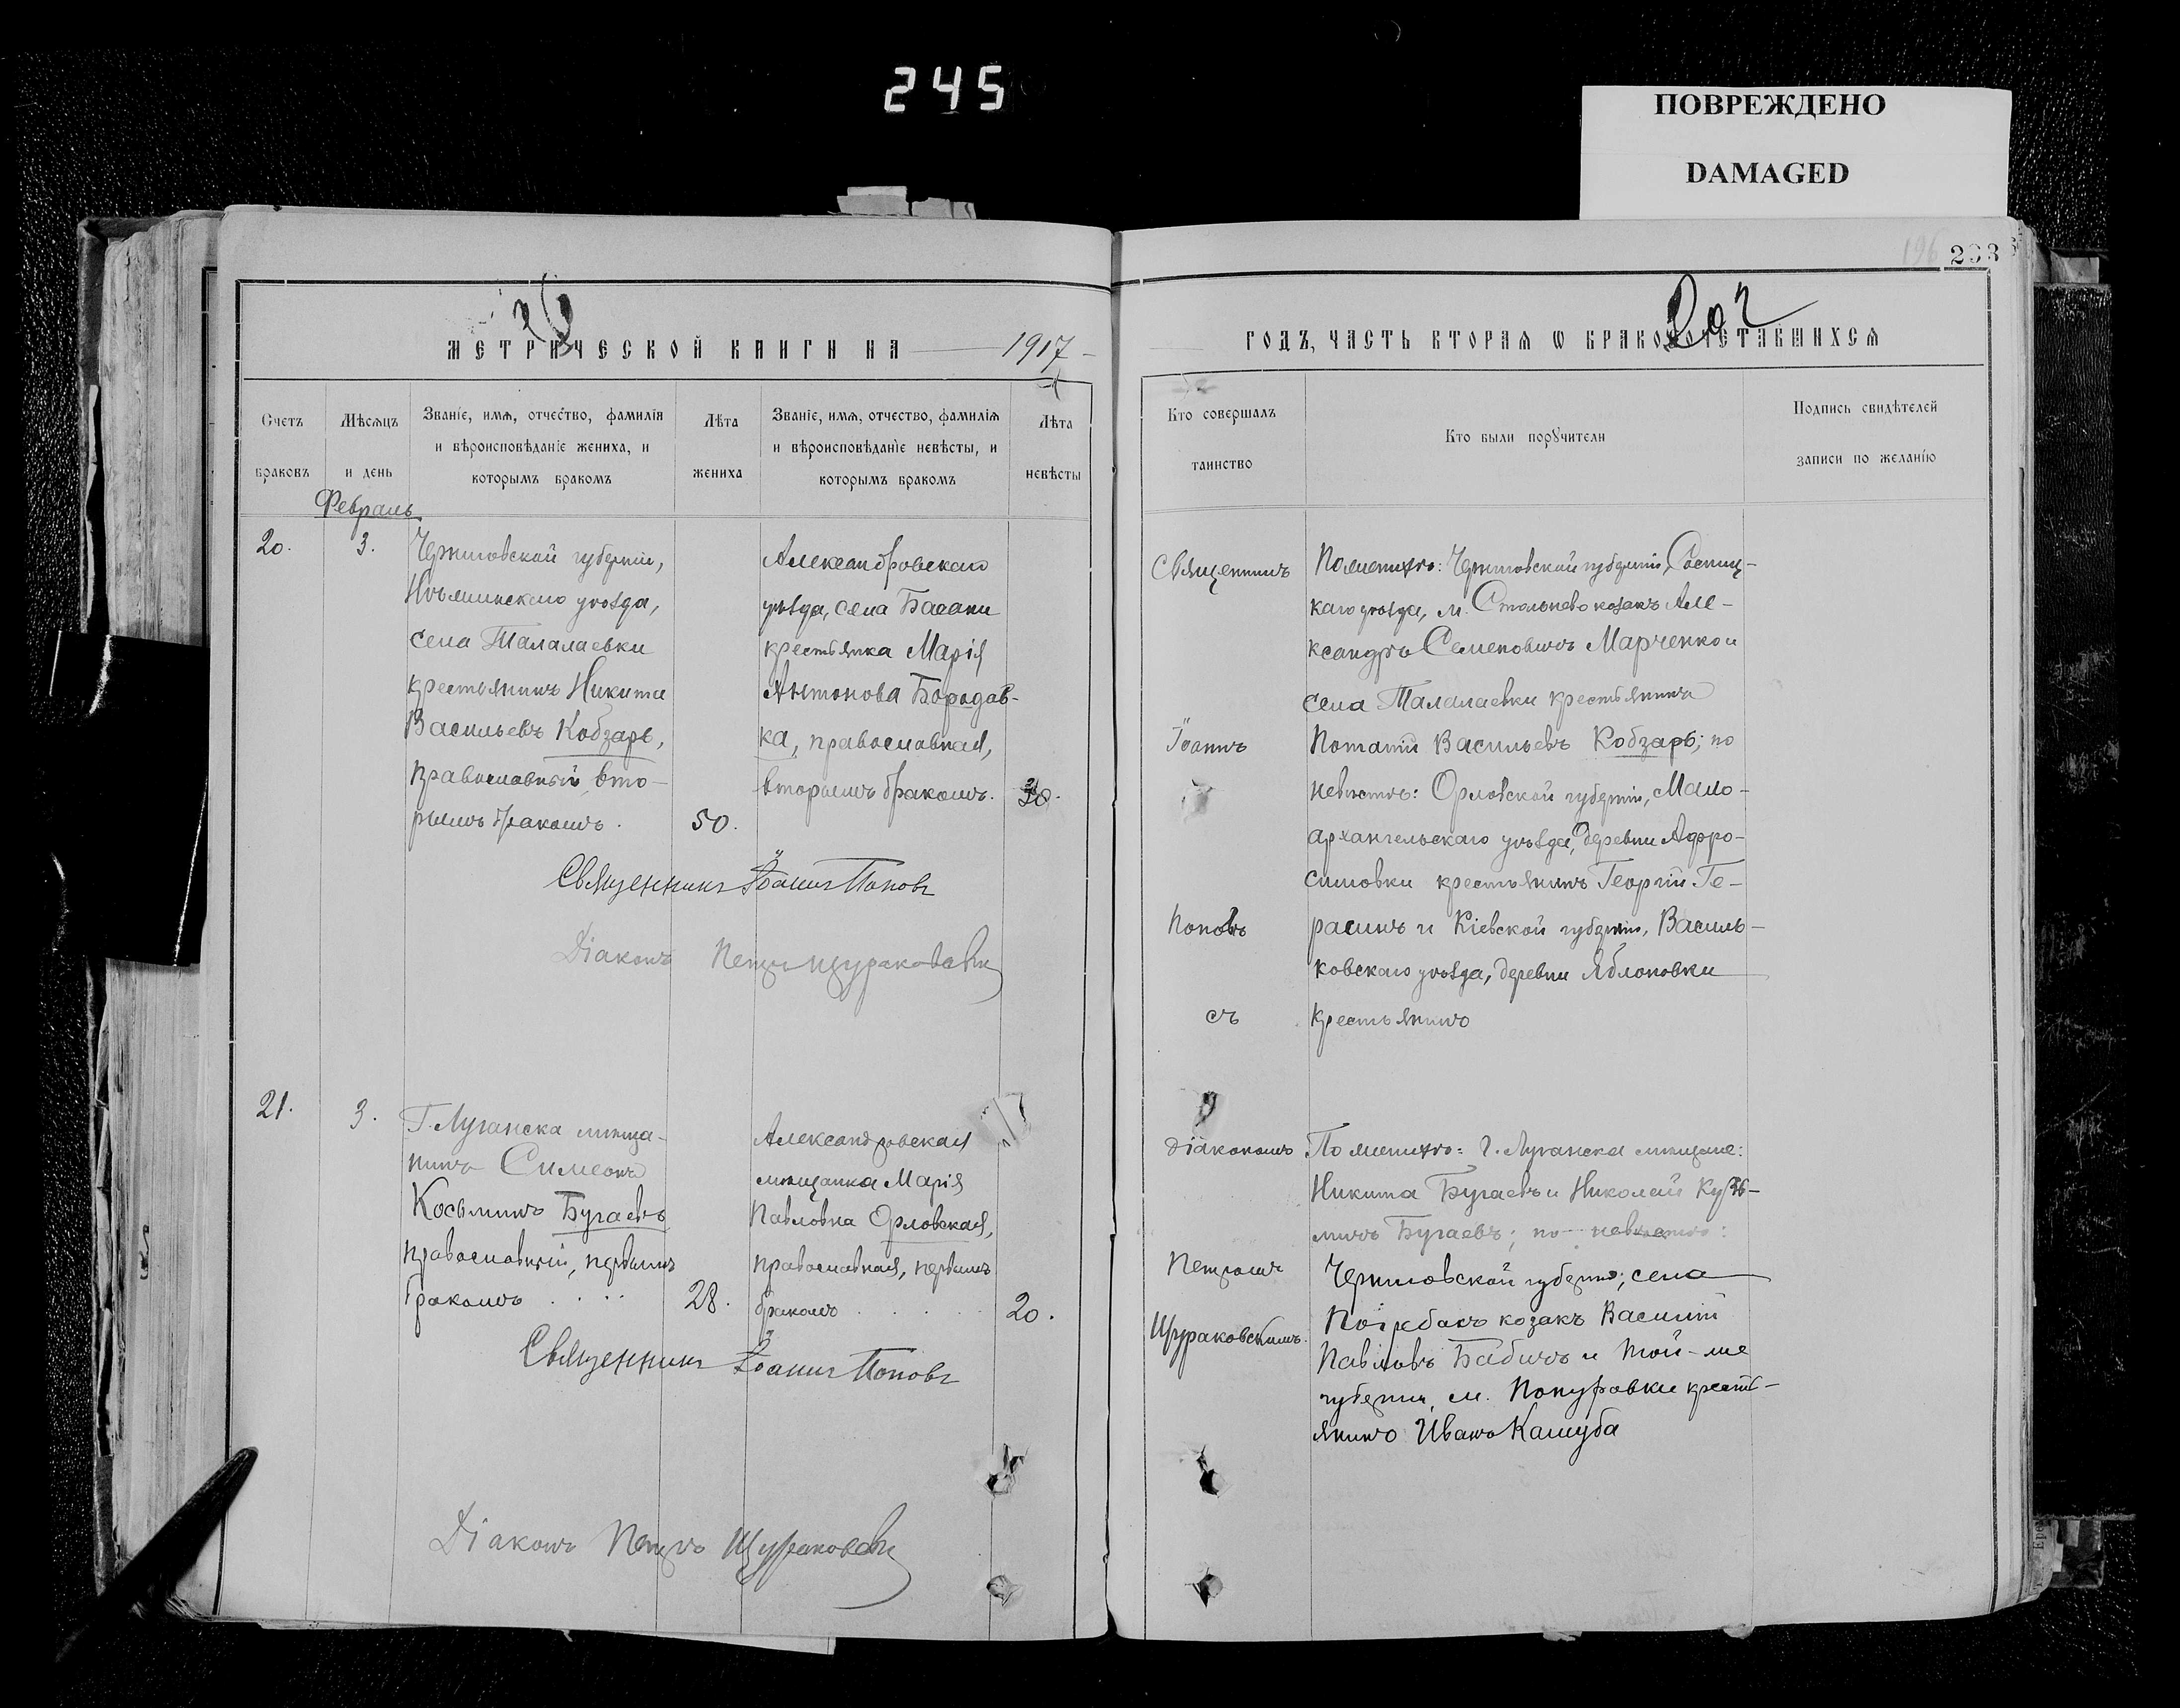 245
ПОВРЕЖДЕНО
DAMAGED
196 203
МЕТРИЧЕСКОЙ КНИГИ НА 1917
Счетъ браковъ
Мѣсяцъ и день
Званіе, имя, отчество, фамилія и вѣроисповѣданіе жениха, и которымъ бракомъ
Лѣта жениха
Званіе, имя, отчество, фамилія и вѣроисповѣданіе невѣсты, и которымъ бракомъ
Лѣта невѣсты
Февраль
20.
3.
Черниговской губерніи,
Нѣжинскаго уѣзда,
села Талалаевки
крестьянинъ Никита
Васильевъ Кобзарь,
православный, вто-
рымъ бракомъ.
50.
Александровскаго
уѣзда, села Басани
крестьянка Марія
Антонова Бородав-
ка, православная,
вторымъ бракомъ.
Священникъ Іоаннъ Поповъ
Діаконъ Петръ Щураковскій
21.
3.
Г. Луганска мѣща-
нинъ Симеонъ
Косьминъ Бугаевъ
православный, первымъ
бракомъ
28.
Александровская
мѣщанка Марія
Павловна Орловская,
православная, первымъ
бракомъ
20.
Священникъ Іоаннъ Поповъ
Діаконъ Петръ Щураковскій
ГОДЪ, ЧАСТЬ ВТОРАЯ Ѡ БРАКОСОЧЕТАВШИХСЯ
Кто совершалъ таинство
Кто были порꙋчители
Подпись свидѣтелей записи по желанію
Священникъ
Іоаннъ
Поповъ
съ
По женихѣ: Черниговской губерніи, Сосниц-
каго уѣзда, м. Стольнево козакъ Але-
ксандръ Семеновичъ Марченко и
села Талалаевки крестьянинъ
Потапій Васильевъ Кобзарь; по
невѣстѣ: Орловской губерніи, Мало-
архангельскаго уѣзда, деревни Афро-
симовки крестьянинъ Георгій Ге-
расинъ и Кіевской губерніи, Василь-
ковскаго уѣзда, деревни Яблоновки
крестьянинъ
діакономъ
Петромъ
Щураковскимъ.
По женихѣ: г. Луганска мѣщане:
Никита Бугаевъ и Николай Кузь-
минъ Бугаевъ; по невѣстѣ:
Черниговской губерніи, села
Погребакъ козакъ Василій
Павловъ Бабичъ и той-же
губерніи, м. Понуровки кресть-
янинъ Иванъ Кашуба